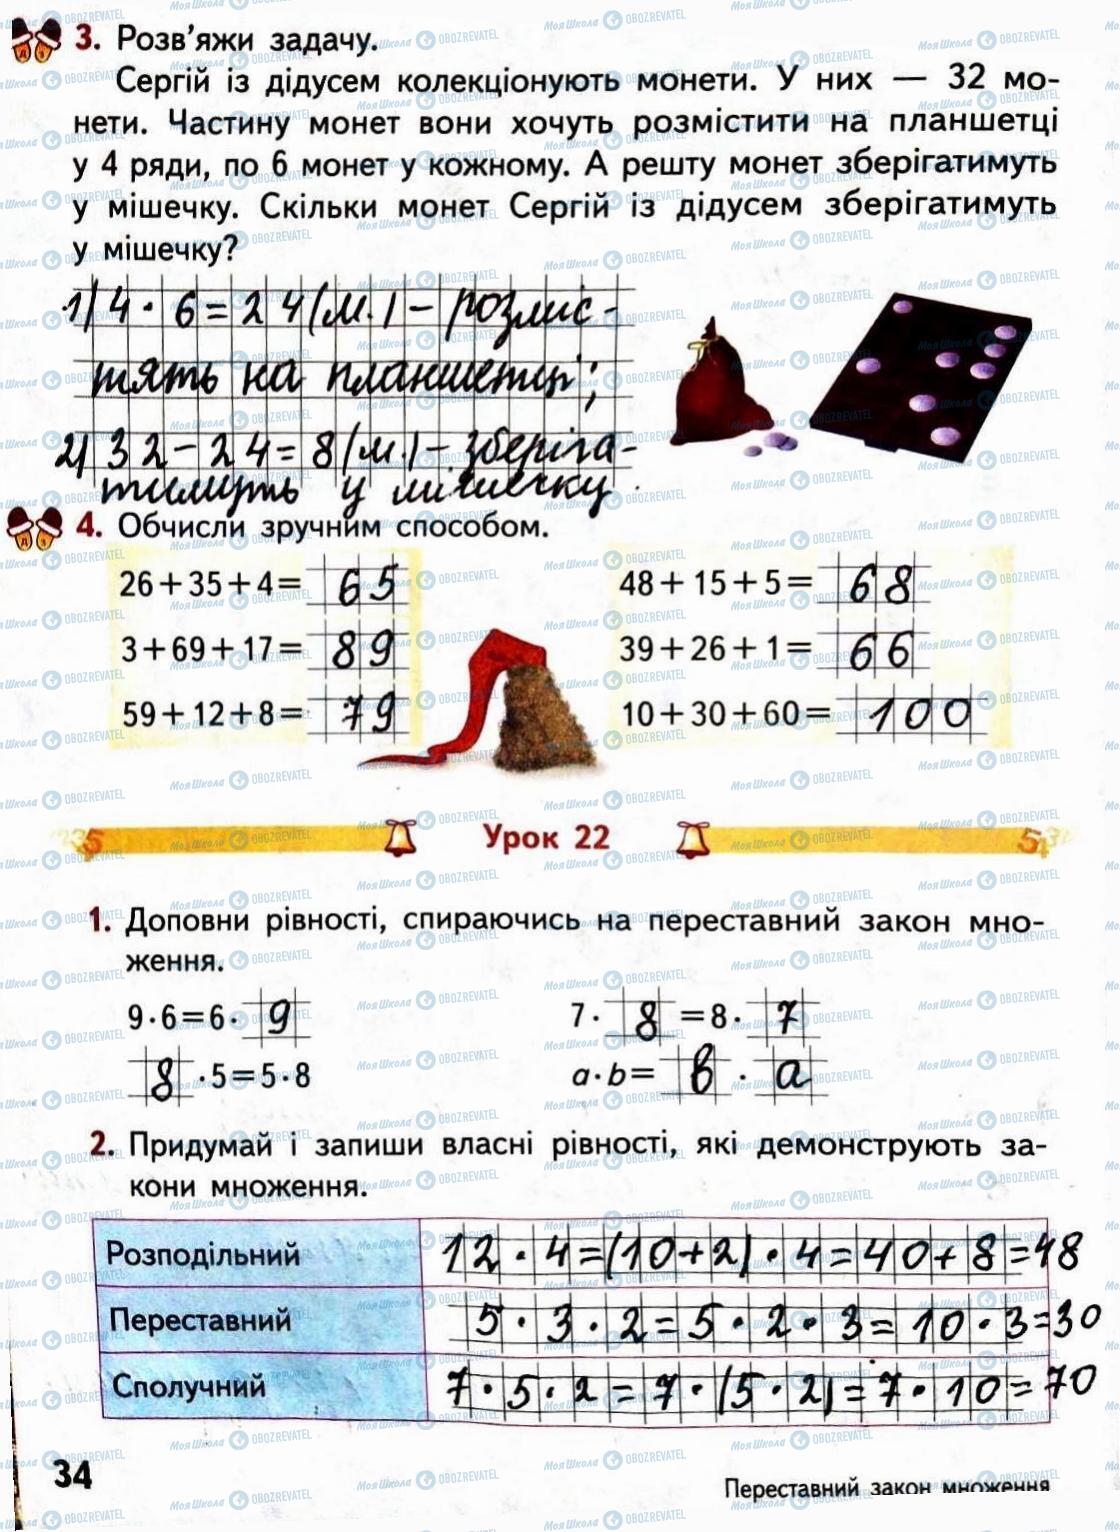 3. Розв'яжи задачу.
Сергій із дідусем колекціонують монети. У них — 32 мо-
нети. Частину монет вони хочуть розмістити на планшетці
у 4 ряди, по 6 монет у кожному. А решту монет зберігатимуть
у мішечку. Скільки монет Сергій із дідусем зберігатимуть
у мішечку?
1) 4 · 6 = 24 (м.) – розміс-
тять на планшетці;
2) 32 – 24 = 8 (м.) – зберіга-
тимуть у мішечку.
4. Обчисли зручним способом.
26 + 35 + 4 = 65
48 + 15 + 5 = 68
3 + 69 + 17 = 89
39 + 26 + 1 = 66
59 + 12 + 8 = 79
10 + 30 + 60 = 100
Урок 22
1. Доповни рівності, спираючись на переставний закон мно-
ження.
9 · 6 = 6 · 9
7 · 8 = 8 · 7
8 · 5 = 5 · 8
a · b = в · a
2. Придумай і запиши власні рівності, які демонструють за-
кони множення.
Розподільний 12 · 4 = (10 + 2) · 4 = 40 + 8 = 48
Переставний 5 · 3 · 2 = 5 · 2 · 3 = 10 · 3 = 30
Сполучний 7 · 5 · 2 = 7 · (5 · 2) = 7 · 10 = 70
34
Переставний закон множення
МояШкола OBOZREVATEL